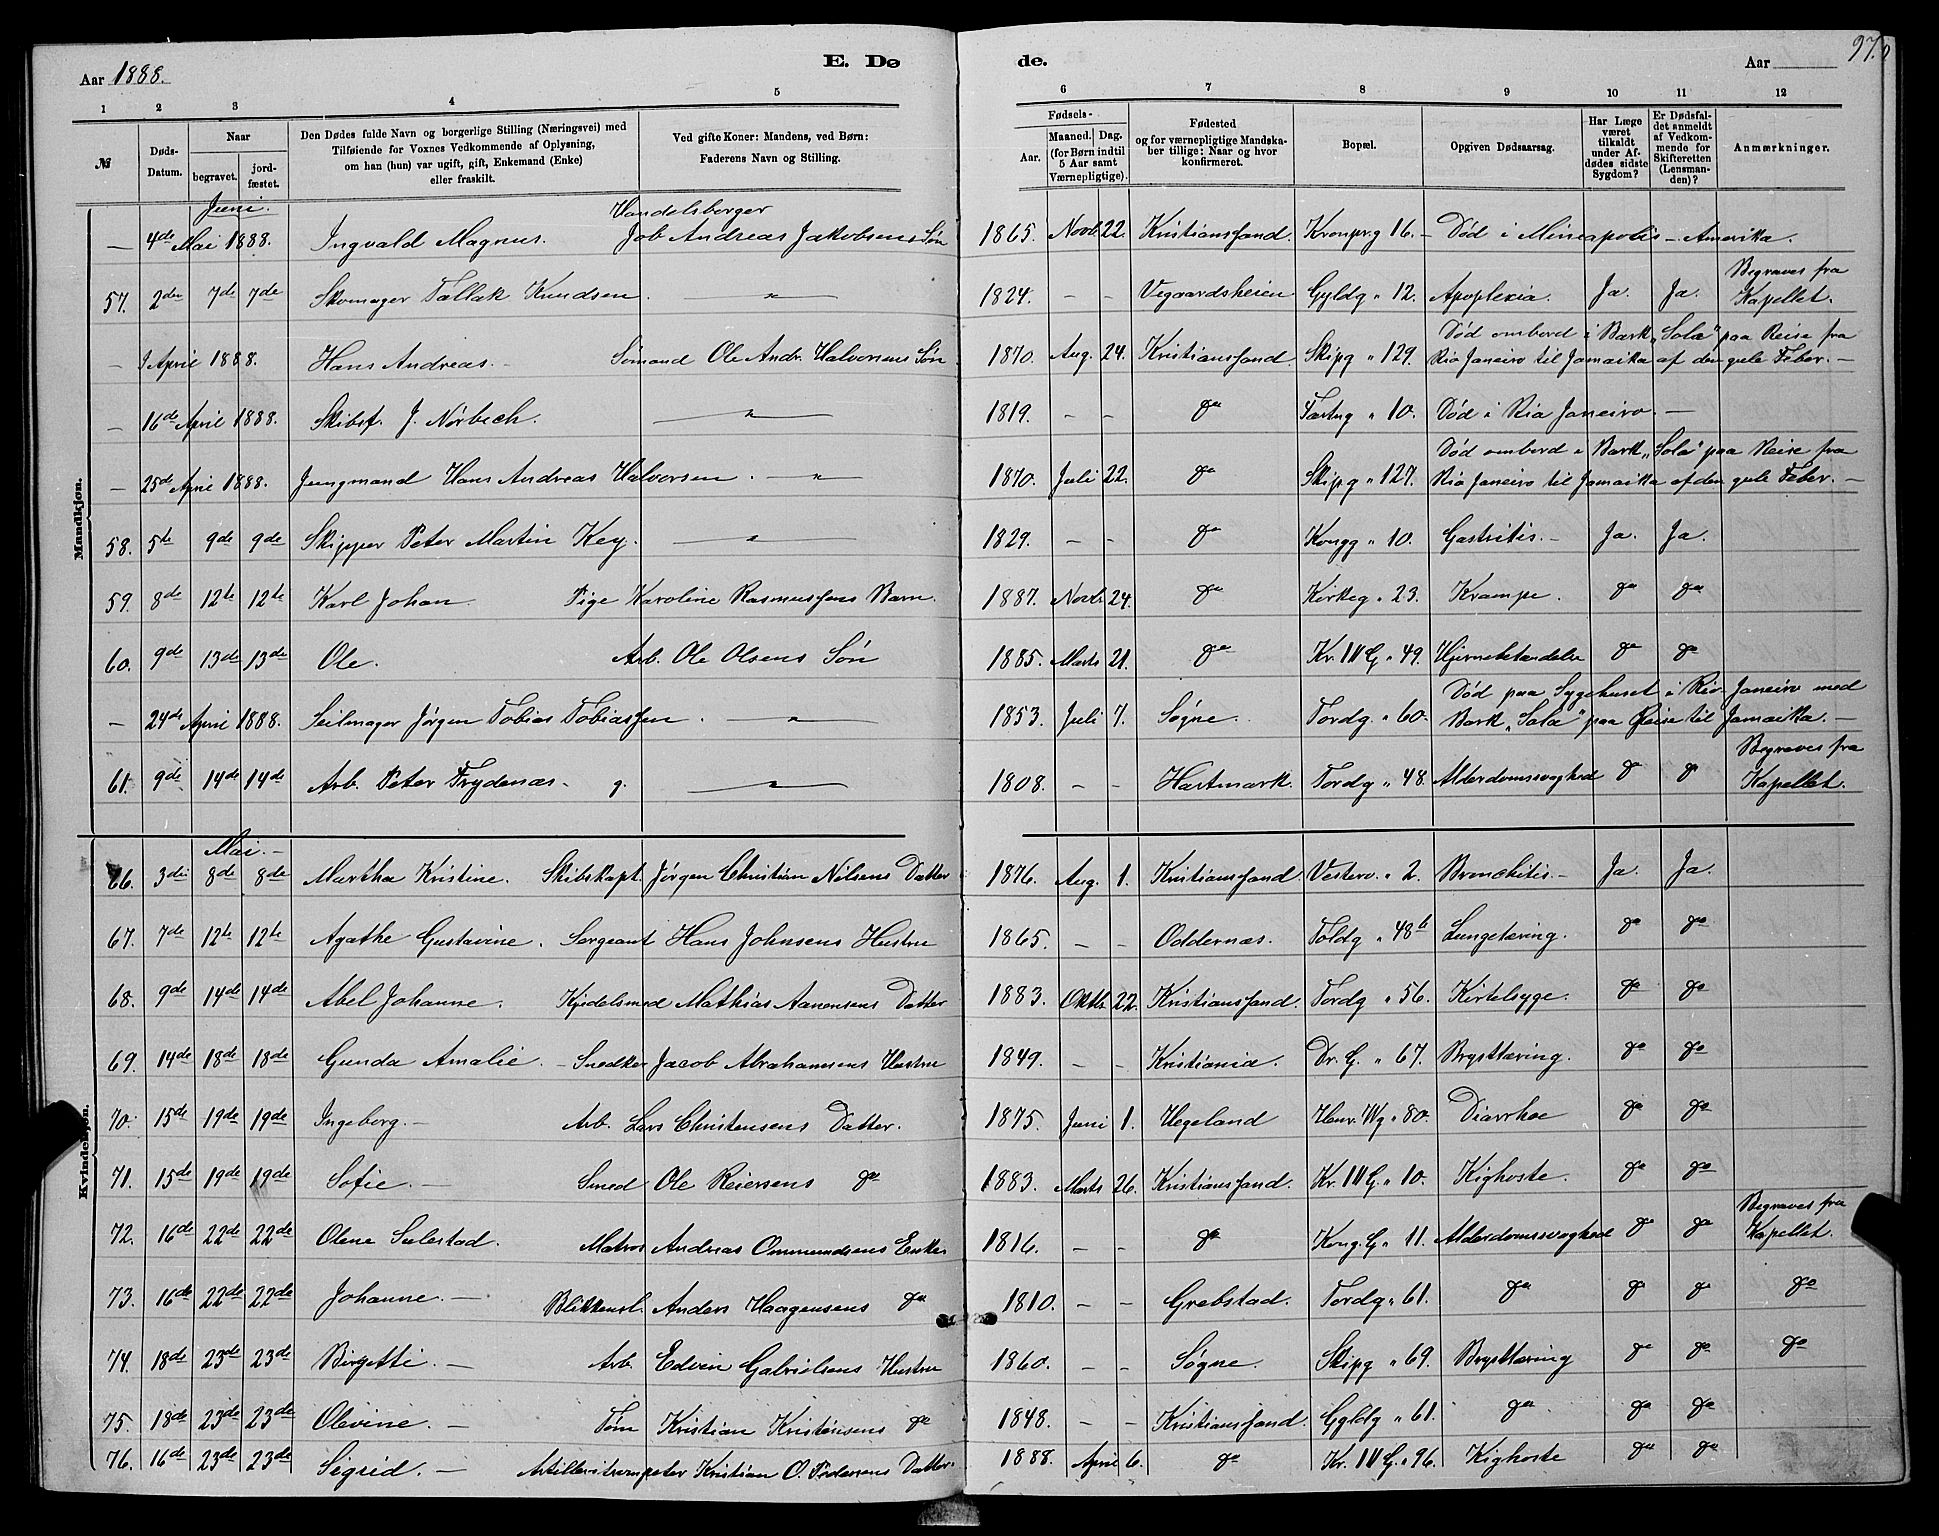 Aar 1888.
E. Dø
de.
Aar
97.
1 2 3 4 5 6 7 8 9 10 11 12
№
Døds-Datum.
Naar
begravet.
jordfæstet.
Den Dødes fulde Navn og borgerlige Stilling (Næringsvei) med
Tilføiende for Voxnes Vedkommende af Oplysning,
om han (hun) var ugift, gift, Enkemand (Enke)
eller fraskilt.
Ved gifte Koner: Mandens, ved Børn:
Faderens Navn og Stilling.
Fødsels-
Aar.
Maaned. Dag.
(for Børn indtil
5 Aar samt
Værnepligtige).
Fødested
og for værnepligtige Mandskaber tillige: Naar og hvor
konfirmeret.
Bopæl.
Opgiven Dødsaarsag.
Har Læge
været
tilkaldt
under Afdødes sidste
Sygdom?
Er Dødsfaldet anmeldt
af Vedkommende for
Skifteretten
(Lensmanden)?
Anmærkninger.
Mandkjøn.
Juni.
Handelsborger
— 4de Mai 1888. Ingvald Magnus. Job Andreas Jakobsens Søn 1865. Novb. 22. Kristianssand. Kronpr.g 16. — Død i Mineapolis — Amerika.
Begraves fra
57. 2den 7de 7de Skomager Tallak Knudsen. — " — 1824. – – Vegaardsheien Gyldg " 12. Apoplexia. Ja. Ja. Kapellet.
Død ombord i Bark „Sola" paa Reise fra
— 9 April 1888. Hans Andreas. — Sømand Ole Andr. Halvorsens Søn 1870. Aug. 24. Kristianssand Skipg " 129. Rio Janeiro til Jamaika af den gule Feber. —
— 16de April 1888. Skibsf. J. Nørbech. — " — 1819. – – do Tastng " 10. Død i Ria Janeiro. —
Død ombord i Bark „Sola" paa Reise fra
— 25de April 1888. Jungmand Hans Andreas Halvorsen. — " — 1870. Juli 22. do Skipg " 127. Ria Janeiro til Jamaika af den gule Feber. —
58. 5te 9de 9de Skipper Peter Martin Key. — " — 1829. – – do Kongg " 10. Gastritis. — Ja. Ja.
59. 8de 12te 12te Karl Johan. Pige Karoline Rasmussens Barn. 1887. Novb. 24. do Kirkeg " 23. Krampe. do do
60. 9de 13de 13de Ole. Arb. Ole Olsens Søn 1885. Marts 21. do Kr. IV G. " 49. Hjernebetændelse do do
Død paa Sygehuset i Rio Janeiro med
— 24de April 1888. Seilmager Jørgen Tobias Tobiassen. — " — 1853. Juli 7. Søgne. Tordg " 60. Bark „Sola" paa Reise til Jamaika. —
Begraves fra
61. 9de 14de 14de Arb. Peter Frydenæs. g. — " — 1808. – – Hartmark. Tordg " 48. Alderdomssvaghed do do Kapellet.
Kvindekjøn.
Mai. —
66. 3die 8de 8de Martha Kristine. Skibskapt. Jørgen Christian Nilsens Datter 1876. Aug. 1. Kristianssand. Vesterv. " 2. Bronchitis. — Ja. Ja.
67. 7de 12te 12te Agathe Gustavine. Sergeant Hans Johnsens Hustru 1865. – – Oddernæs. Toldg " 48b Lungetæring. do do
68. 9de 14de 14de Abel Johanne. Kjedelsmed Mathias Aanensens Datter 1883. Oktbr 22. Kristianssand. Tordg " 56. Kirtelsyge. do do
69. 14de 18de 18de Gunda Amalie. — Snedker Jacob Abrahamsens Hustru 1849. – – Kristiania. Dr. G. " 67. Brysttæring. do do
70. 15de 19de 19de Ingeborg. — Arb. Lars Christensens Datter. 1875. Juni 1. Hegeland Henr. Wg " 80. Diarrhoe do do
71. 15de 19de 19de Sofie. — Smed Ole Reiersens do 1883. Marts 26. Kristianssand. Kr. IV G. " 10. Kighoste. do do
Begraves fra
72. 16de 22de 22de Olene Sulestad. Matros Andreas Ommundsens Enke 1816. – – do Kong. G. " 11. Alderdomssvaghed do do Kapellet.
73. 16de 22de 22de Johanne. — Blikkensl. Anders Haagensens do 1810. – – Grebstad. Tordg " 61. do do do do
74. 18de 23de 23de Birgetti. — Arb. Edvin Gabrielsens Hustru 1860. – – Søgne. Skipg " 69. Brysttæring do do do
75. 18de 23de 23de Olevine. — Tøm Kristian Kristensens do 1848. – – Kristianssand. Gyldg " 61. do do do
76. 16de 23de 23de Sigrid. — Artilleritrompeter Kristian O. Pedersens Datter 1888. April 6. do Kr. IV G. " 96. Kighoste do do